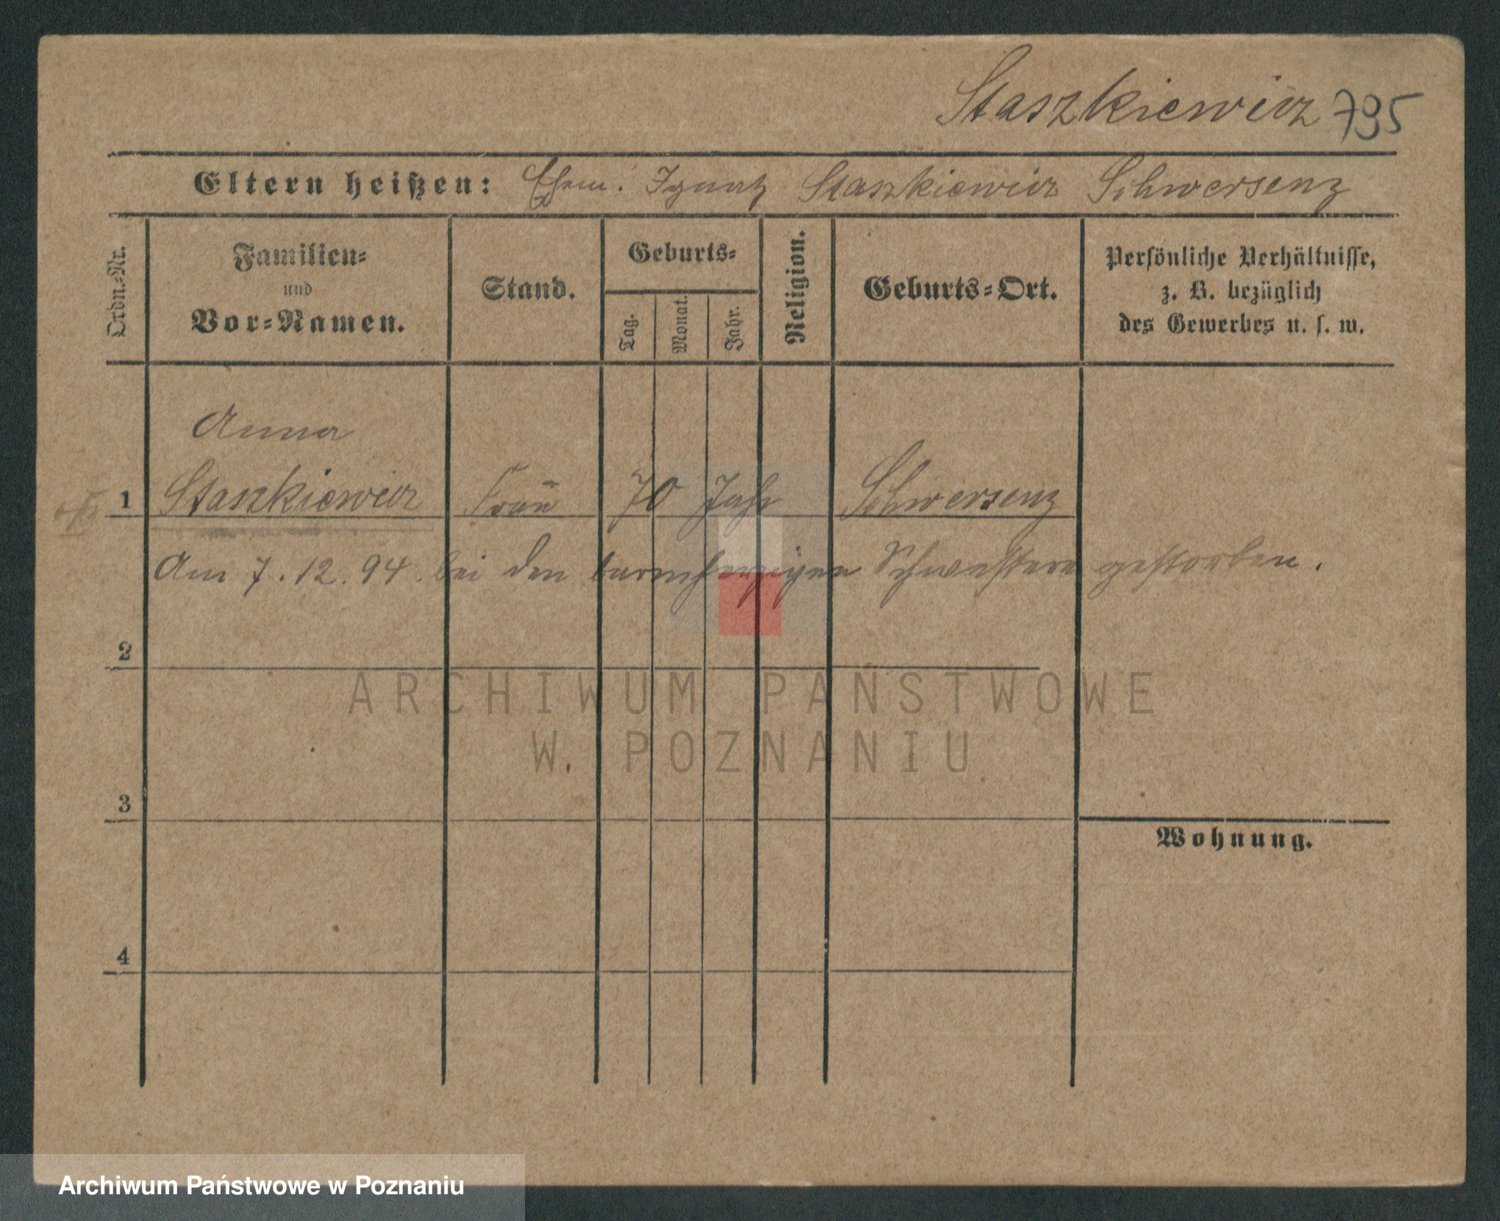 Staszkiewicz 795
Eltern heißen: Ehem. Ignatz Staszkiewicz Schwersenz
Ordn.-Nr.
Familien-
und
Vor-Namen.
Stand.
Geburts-
Tag.
Monat.
Jahr.
Religion.
Geburts-Ort.
Persönliche Verhältnisse,
z. B. bezüglich
des Gewerbes u. s. w.
Anna
1 Staszkiewicz Frau 70 Jahr Schwersenz
Am 7.12.94. bei den barmherzigen Schwestern gestorben.
2
ARCHIWUM PAŃSTWOWE
W POZNANIU
3
Wohnung.
4
Archiwum Państwowe w Poznaniu